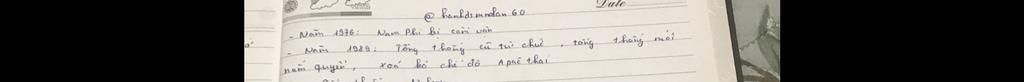 Date
@hanhdsmndan60
- Năm 1976: Nam Phi bị cấm vận
- Năm 1989: Tổng thống cũ từ chức, tổng thống mới
nắm quyền, xoá bỏ chế độ Apac thai